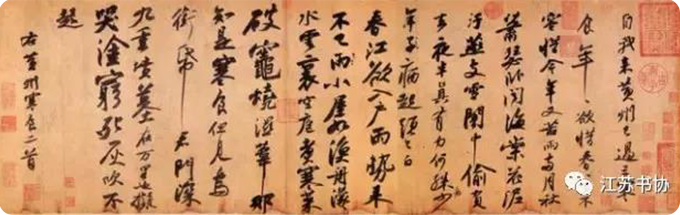 自我來黃州已過三寒
食年〻欲惜春春去不
容惜今年又苦雨兩月秋
蕭瑟臥聞海棠花泥
汙燕支雪闇中偷負
去夜半真有力何殊少
年子病起頭已白
春江欲入戶雨勢來
不已雨小屋如漁舟濛〻
水雲裏空庖煮寒菜
破竈燒濕葦那
知是寒食但見烏
銜帋君門深
九重墳墓在萬里也擬
哭塗窮死灰吹不
起
右黃州寒食二首
江苏书协